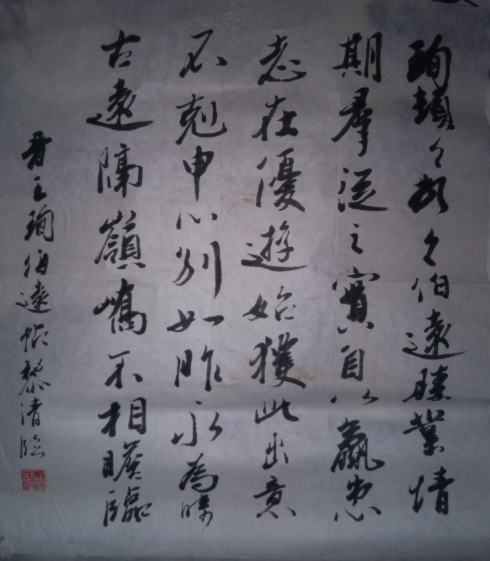 珣頓々首々伯遠勝業情
期羣從之寶自以羸患
志在優遊始獲此出意
不剋申分別如昨永為疇
古遠隔嶺嶠不相瞻臨
晉王珣伯遠帖黎清臨